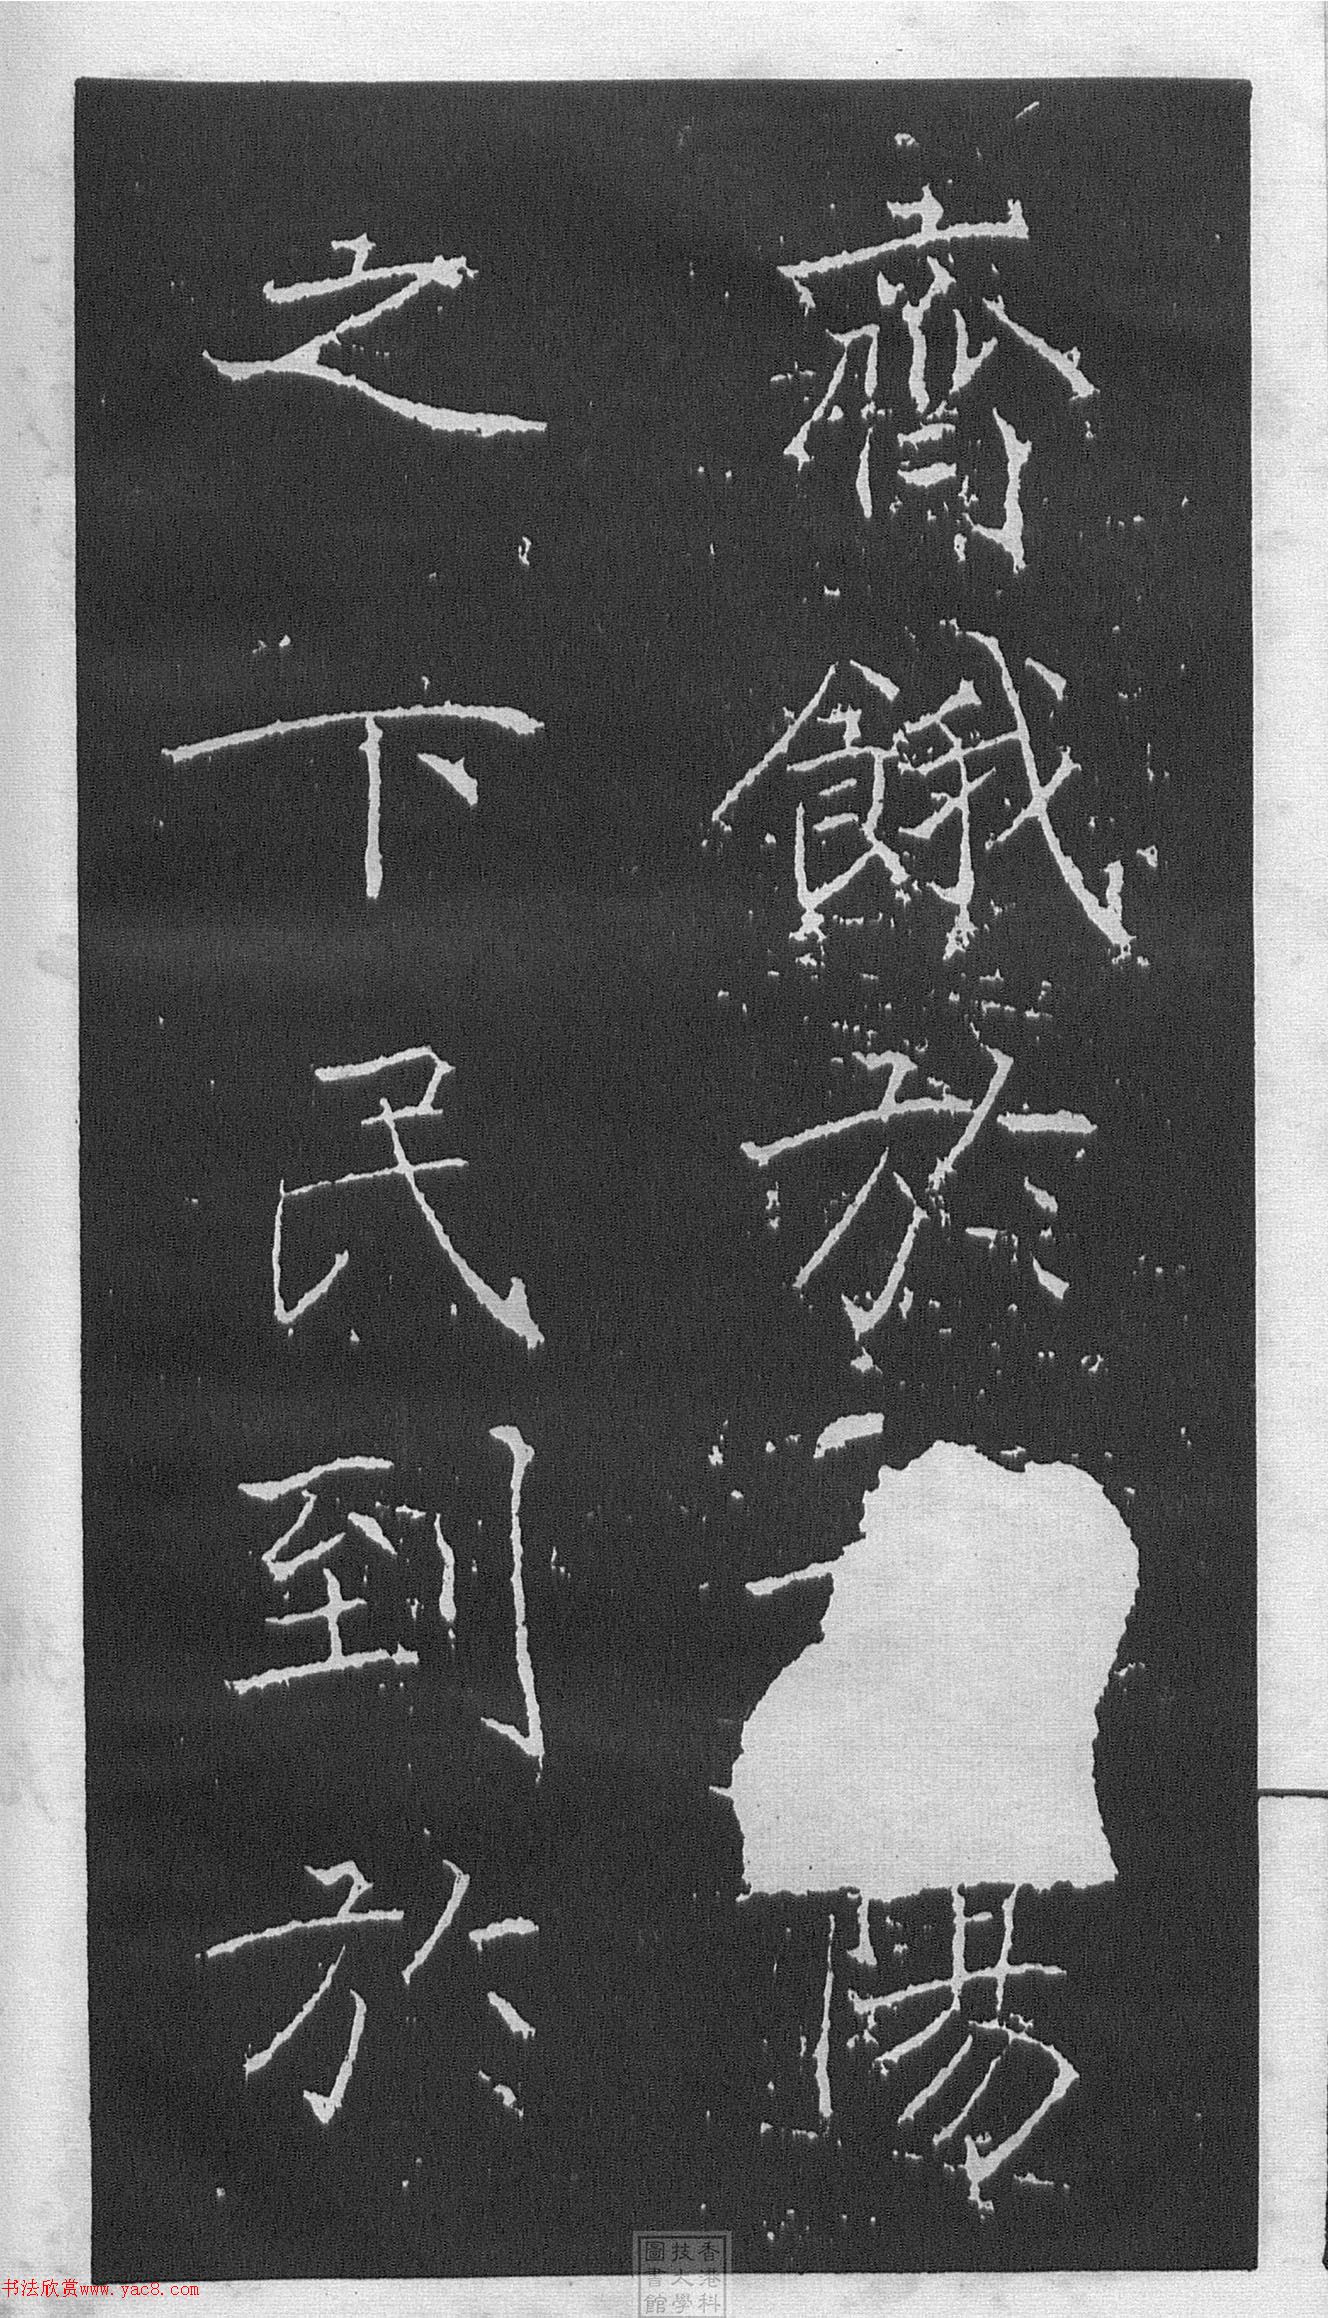 齊餓於陽
之下民到於
香港科技大學圖書館
书法欣赏www.yac8.com